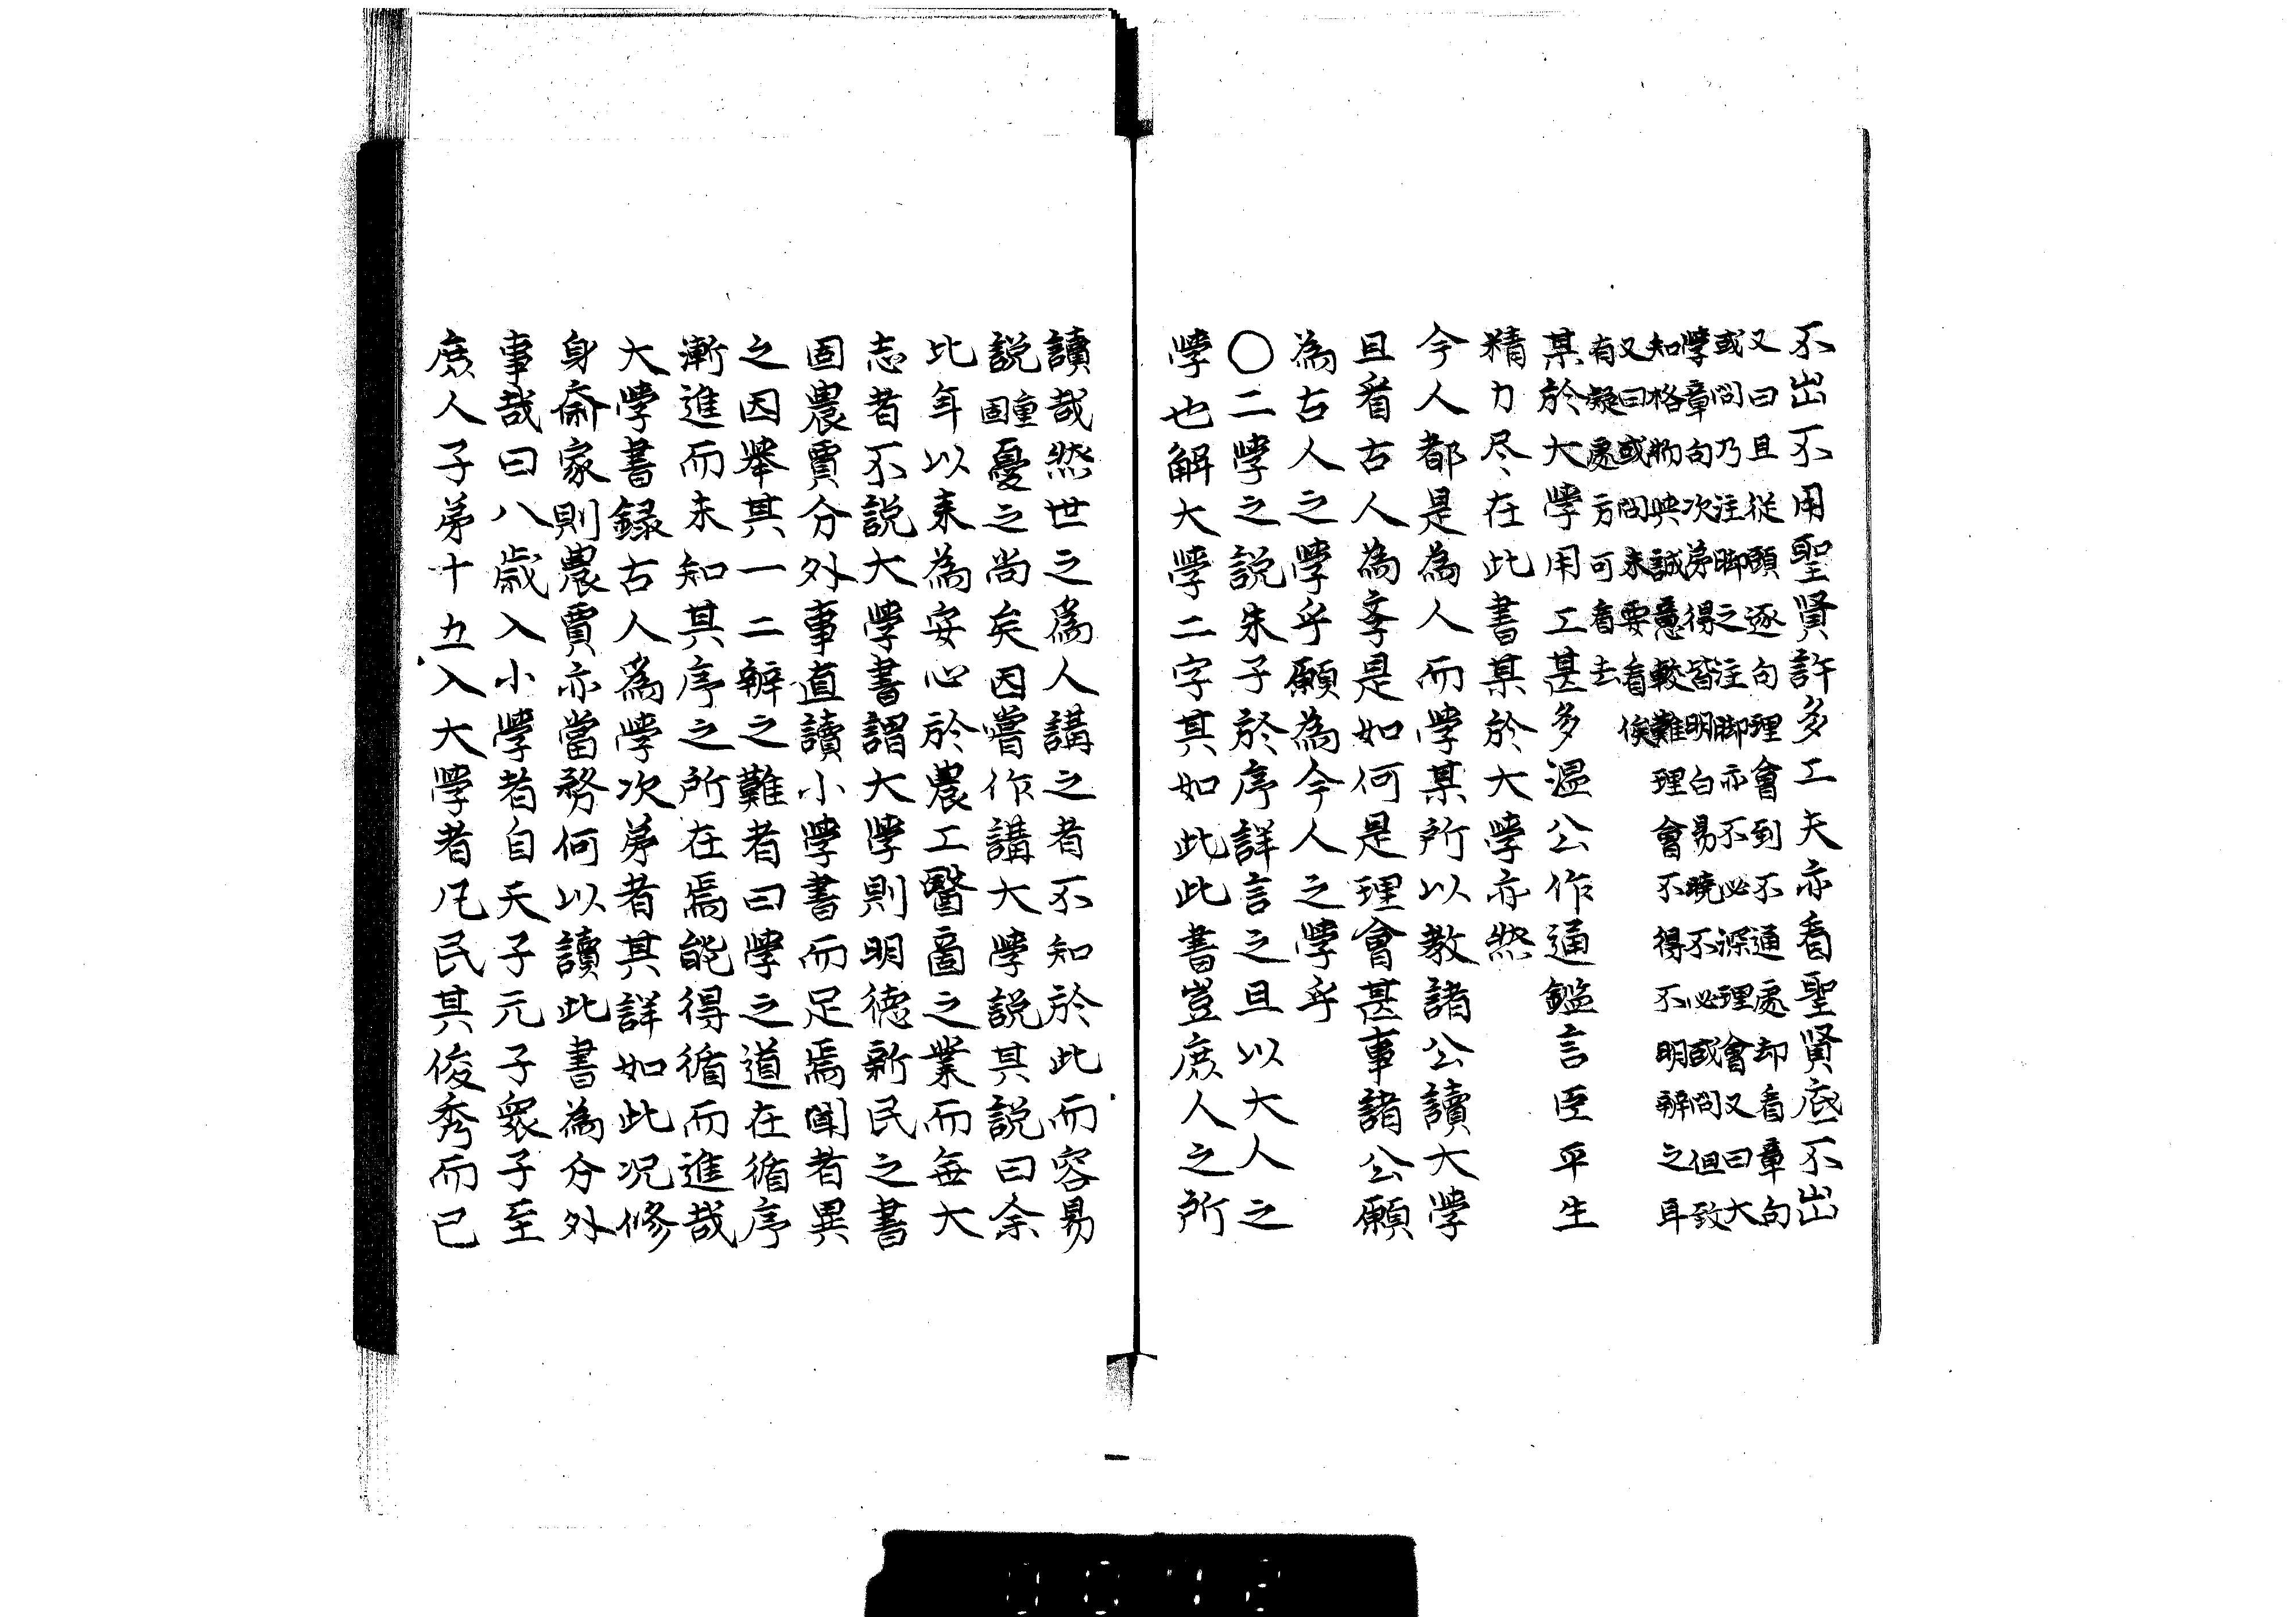 不出不用聖賢許多工夫亦看聖賢底不出
又曰且從頭逐句理會到不通處却看章句
或問乃注脚之注脚亦不必深理會又曰大
學章句次第得皆明白易曉不必或問但致
知格物與誠意較難理會不得不明辨之耳
又曰或問未要看俟
有疑處方可看去
某於大學用工甚多温公作通鑑言臣平生
精力尽在此書某於大學亦然
今人都是為人而學某所以教諸公讀大學
且看古人為李是如何是理會甚事諸公願
為古人之學乎願為今人之學乎
〇二學之説朱子於序詳言之且以大人之
學也解大學二字其如此此書豈庶人之所
讀哉然世之爲人講之者不知於此而容易
説重固憂之尚矣因嘗作講大學説其説曰余
比年以来為安心於農工醫啚之業而毎大
志者不説大學書謂大學則明徳新民之書
固農賈分外事直讀小學書而足焉聞者異
之因舉其一二辨之難者曰學之道在循序
漸進而未知其序之所在焉能得循而進哉
大學書録古人爲學次第者其詳如此况修
身斎家則農賈亦當務何以讀此書為分外
事哉曰八歳入小學者自天子元子衆子至
庶人子弟十五入大學者凡民其俊秀而已